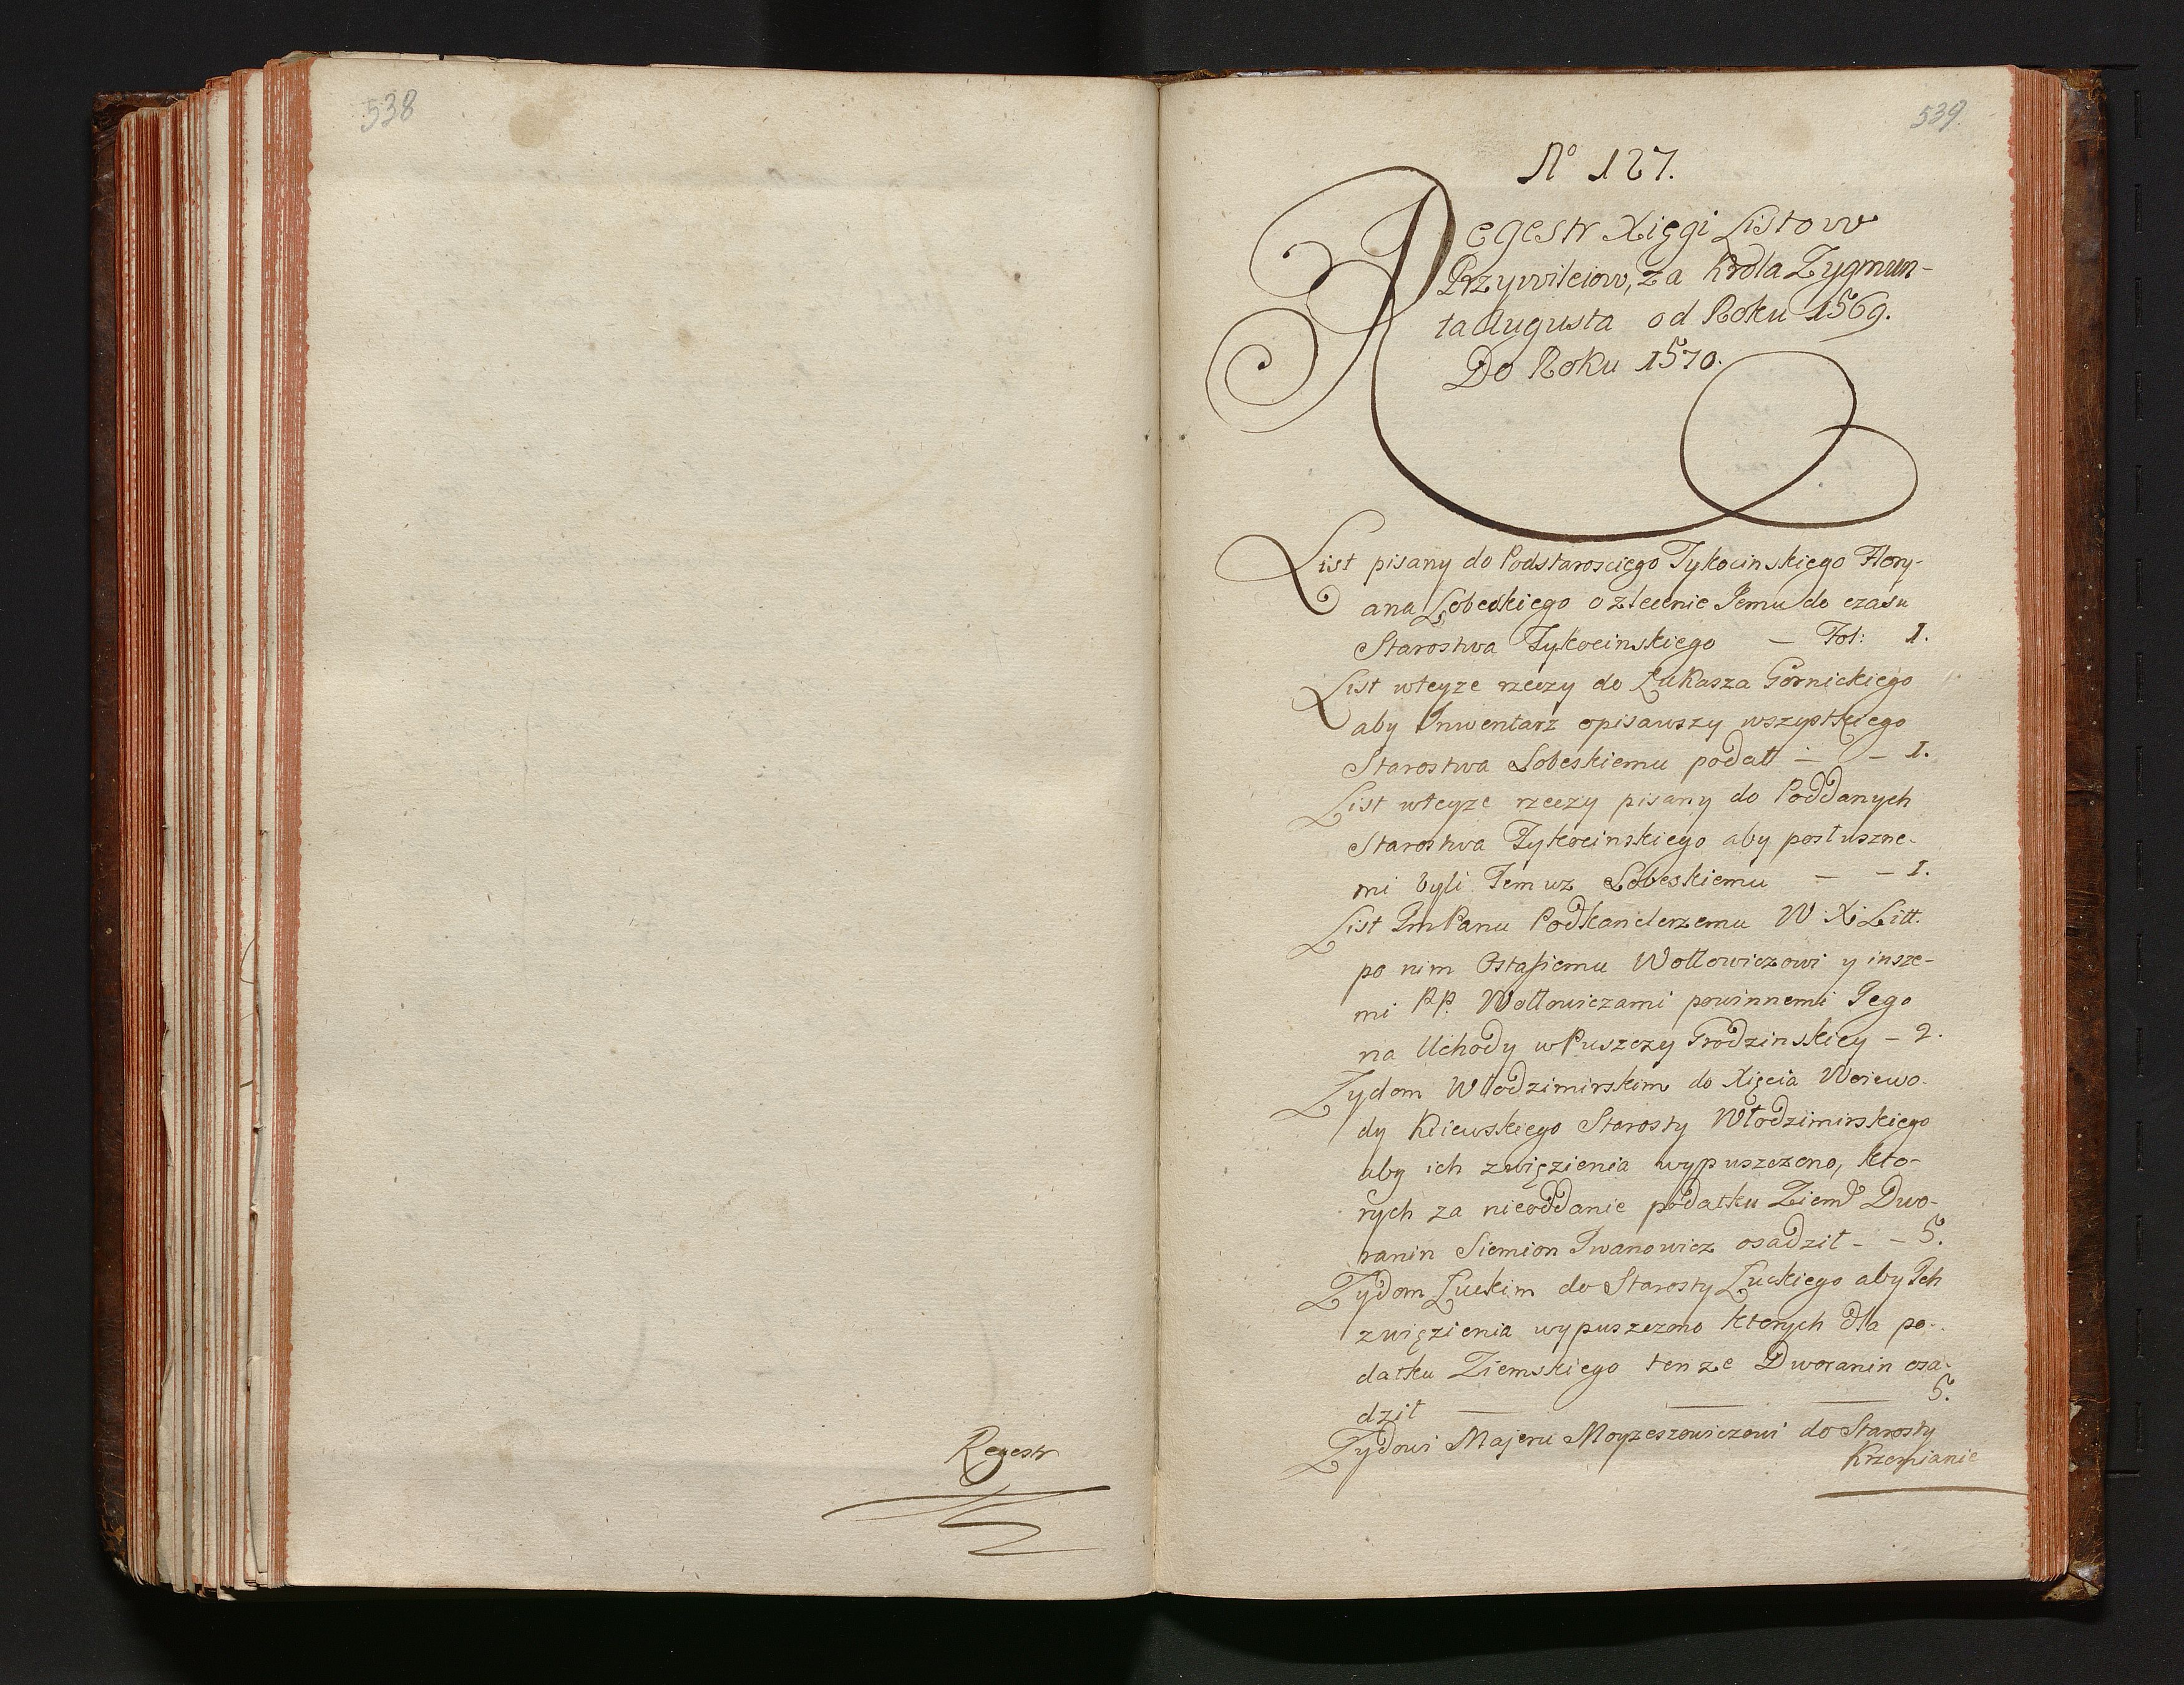 538
Regestr
539.
No 127.
Regestr Xięgi Listow
Przywileiow, za Krola Zygmun-
ta Augusta od Roku 1569.
Do Roku 1570.
List pisany do Podstarosciego Tykocinskiego Flory-
ana Lobeskiego o zlecenie Jemu do czasu
Starostwa Tykocinskiego — Fol: 1.
List wteyze rzeczy do Łukasza Gornickiego
aby Inwentarz opisawszy wszystkiego
Starostwa Lobeskiemu podał — — 1.
List wteyze rzeczy pisany do Poddanych
Starostwa Tykocinskiego aby posłuszne-
mi byli Temuz Lobeskiemu — — 1.
List Jm Panu Podkanclerzemu W. X. Litt.
po nim Ostafiemu Wołłowiczowi y insze-
mi PP. Wołłowiczami powinnemi Jego
na Uchody w Puszczy Grodzinskiey — 2.
Zydom Włodzimirskim do Xięcia Woiewo-
dy Kiiewskiego Starosty Włodzimirskiego
aby ich zwięzienia wypuszczono, kto-
rych za nieoddanie podatku Ziem Dwo-
ranin Siemion Iwanowicz osadził — — 5.
Zydom Łuckim do Starosty Łuckiego aby Ich
zwięzienia wypuszczono ktorych dla po-
datku Ziemskiego tenze Dworanin osa-
dził — — — 5.
Zydowi Majeru Moyzeszowiczowi do Starosty
Krzemianie